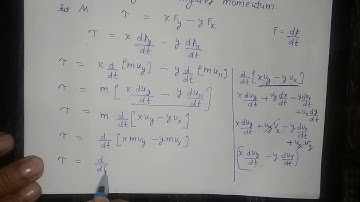 momentum.
τ = x Fy - y Fx
F = dp/dt
τ = x dPy/dt - y dPx/dt
τ = x d/dt [m vy] - y d/dt [m vx]
τ = m [ x dvy/dt - y dvx/dt ]
τ = m d/dt [x vy - y vx]
τ = d/dt [x m vy - y m vx]
τ = d/dt
d/dt [x vy - y vx]
x dvy/dt + vy dx/dt - y dvx/dt
x dvy/dt + vy vx - y dvx/dt
- vx vy
( x dvy/dt - y dvx/dt )